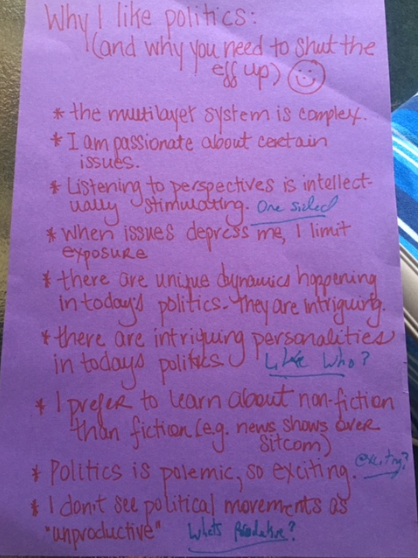 Why I like politics:
(and why you need to shut the
eff up)
* the multilayer system is complex.
* I am passionate about certain
issues.
* Listening to perspectives is intellect-
ually stimulating. One sided
* when issues depress me, I limit
exposure
* there are unique dynamics happening
in today's politics. They are intriguing.
* there are intriguing personalities
in todays politics Like Who?
* I prefer to learn about non-fiction
than fiction (e.g. news shows over
sitcom)
* Politics is polemic, so exciting. exciting?
* I don't see political movements as
"unproductive" Whats Productive?